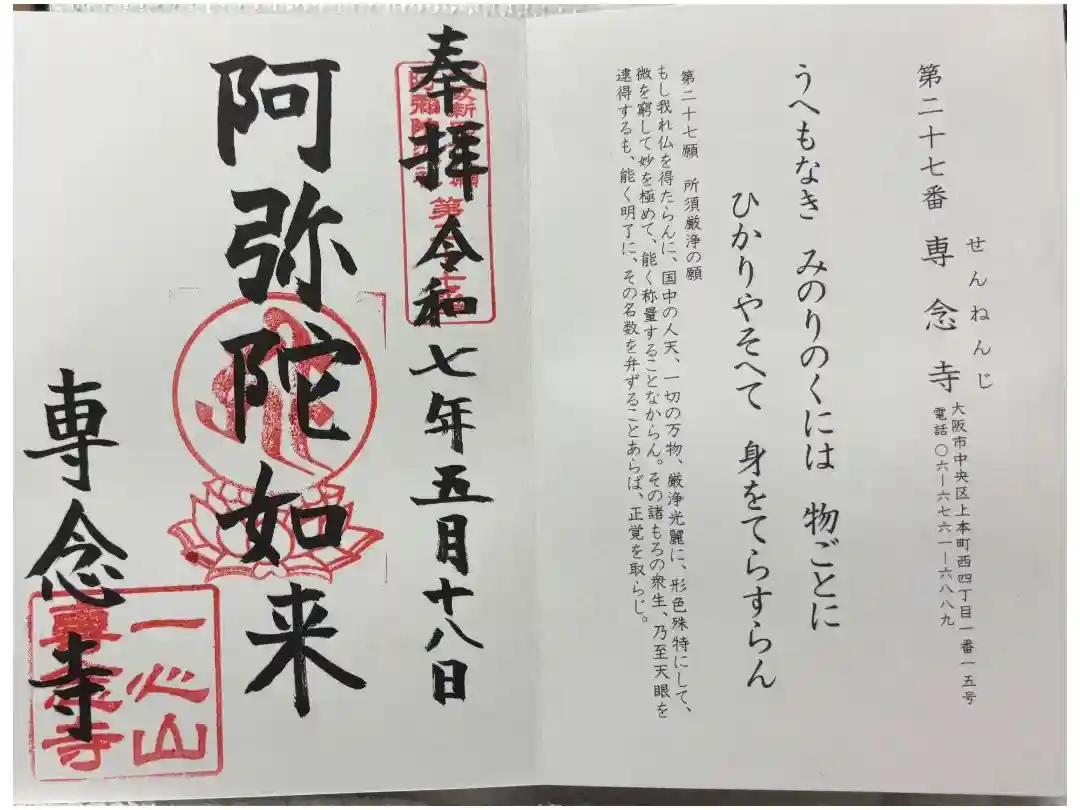 第二十七番 専念寺
せんねんじ
大阪市中央区上本町西四丁目一番一五号
電話 〇六ー六七六一ー六八八九
うへもなき みのりのくには 物ごとに
ひかりやそへて 身をてらすらん
第二十七願 所須厳浄の願
もし我れ仏を得たらんに、国中の人天、一切の万物、厳浄光麗に、形色殊特にして、
微を窮して妙を極めて、能く称量することなからん。その諸もろの衆生、乃至天眼を
逮得するも、能く明了に、その名数を弁ずることあらば、正覚を取らじ。
奉拝 令和七年五月十八日
阿弥陀如来
専念寺
一心山
專念寺